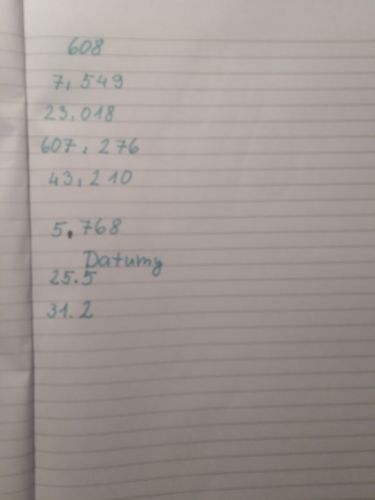 608
7, 549
23,018
607, 276
43,210
5.768
Datumy
25.5
31.2